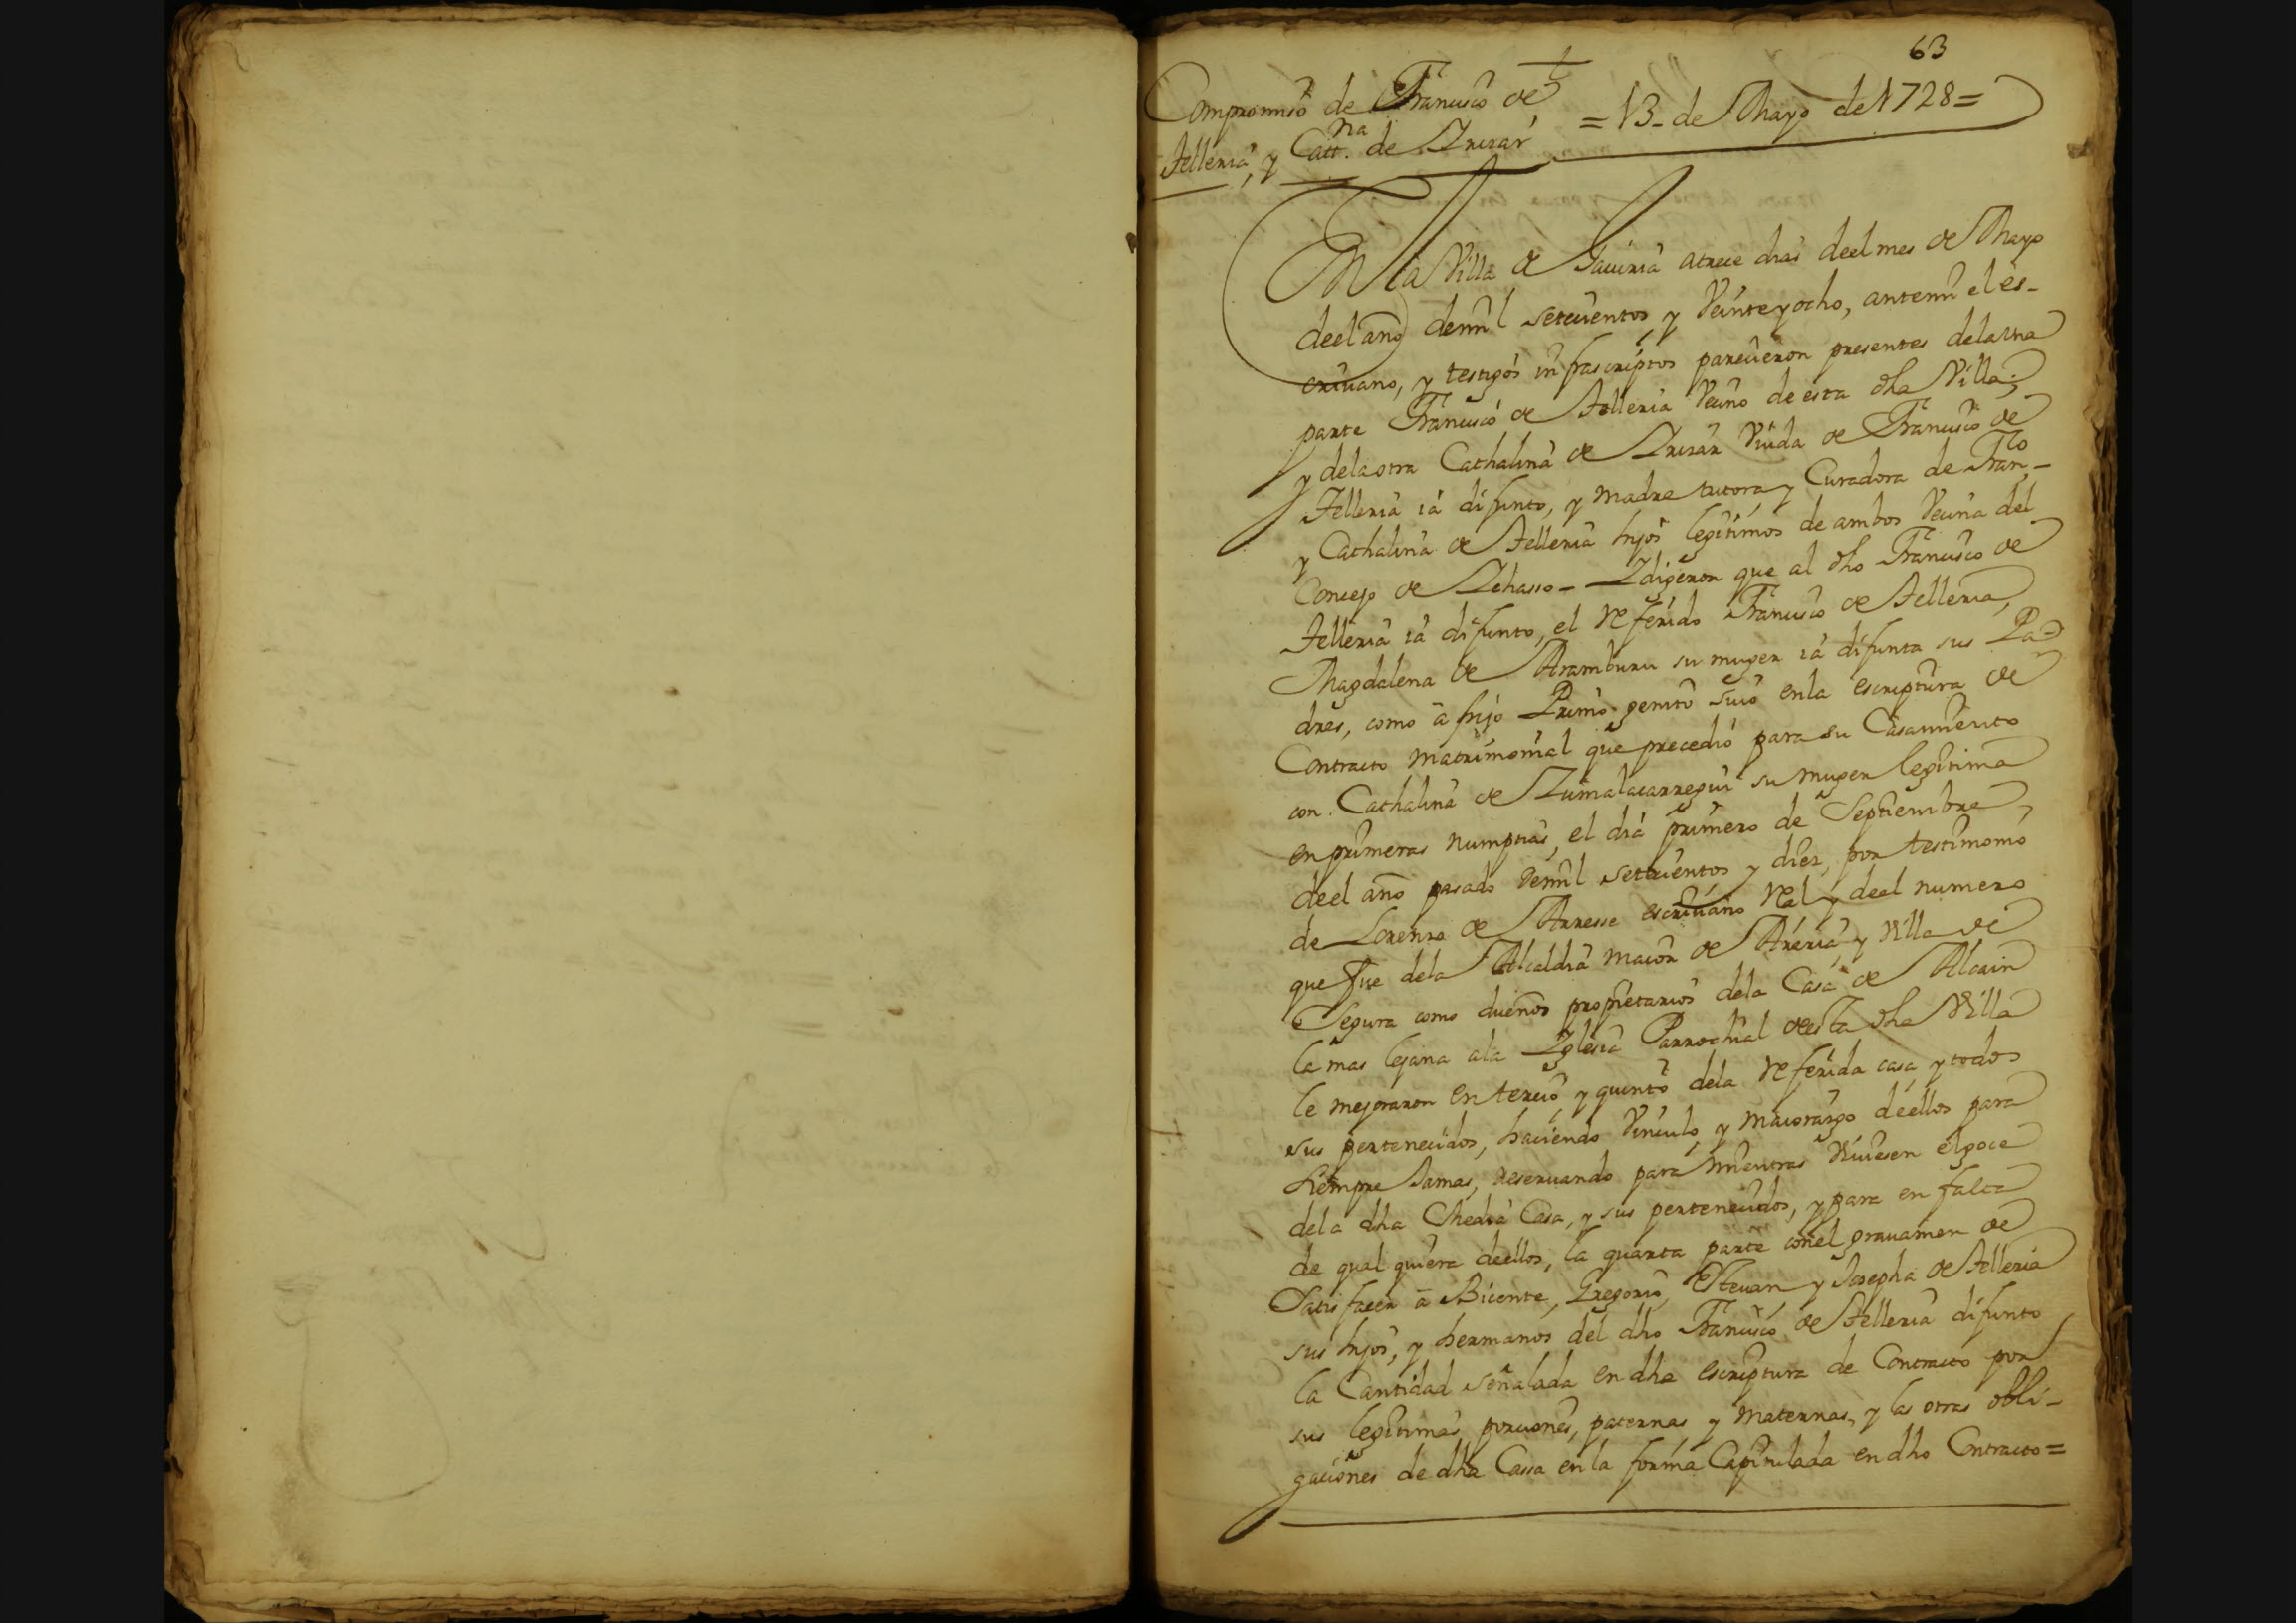 63
Compromiso de Francisco de
= 13 - de Mayo de 1728 =
Telleria, y Catt.na de Irizar
En la Villa de Gaviria a trece dias deel mes de Mayo
deel año demil setecientos y Veinteyocho, antemi el es-
crivano, y testigos infrascriptos parecieron presentes dela una
parte Francisco de Telleria Vecino de esta dha Villa;
y dela otra Cathalina de Irizar Viuda de Francisco de
Telleria ia difunto, y madre tutora y Curadora de Fran.co
y Cathalina de Telleria hijos legitimos de ambos Vecina del
Concejo de Ichasso - I digeron que al dho Francisco de
Telleria ia difunto, el referido Francisco de Telleria,
Magdalena de Aramburu su muger ia difunta sus Pa-
dres, como a hijo Primo genito suio enla escriptura de
Contracto matrimonial que precedió para su Casamiento
con Cathalina de Zumalacarregui su muger legitima
en primeras numptias, el dia primero de Septiembre,
deel año pasado demil setecientos y diez, por testimonio
de Lorenzo de Arrese escrivano Rel y deel numero
que fue dela Alcaldia maior de Areria, y Villa de
Segura como dueños propietarios dela Casa de Alcain
la mas lejana ala Iglesia Parrochial de esta dha Villa
le mejoraron en tercio y quinto dela referida casa y todos
sus pertenecidos, haciendo Vinculo, y maiorazgo de ellos para
siempre Jamas, reservando para mientras Viviesen el goce
dela dha media Casa, y sus pertenecidos, y para en falta
de qual quiera deellos, la quarta parte conel gravamen de
Satisfacer a Bicente, Gregorio, Estevan y Josepha de Telleria
sus hijos, y hermanos del dho Francisco de Telleria difunto
la Cantidad señalada en dha escriptura de Contracto por
sus legitimas porciones, paternas y maternas, y las otras obli-
gaciones de dha Cassa enla forma Capitulada en dho Contracto =